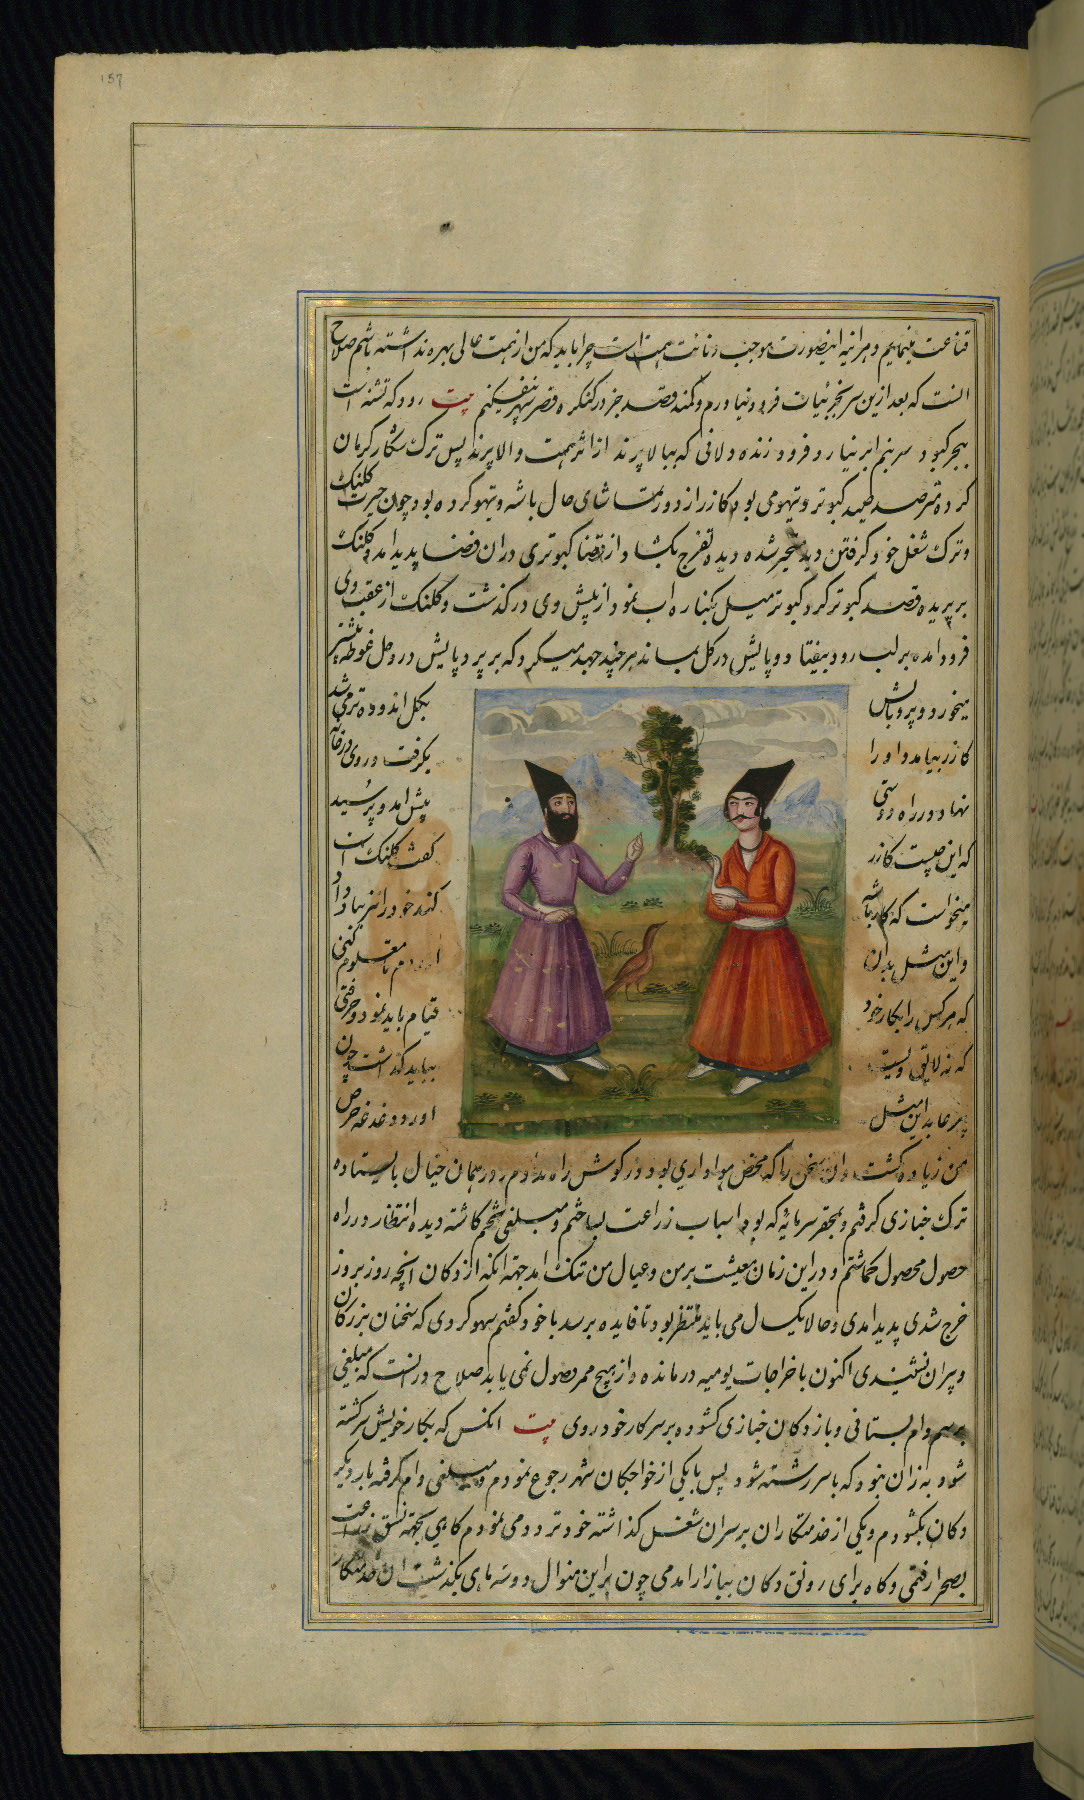 157
قناعت مینمایم و هر اینه اینصورت موجب دنائت همت است چرا باید که من از همت عالی بهره نداشته باشم صلاح
انست که بعد ازین سر بجزئیات فرود نیاورم و کمند قصد جز در کنکره قصر سپهر نیفکنم بیت رود که تشنه است
ببحر کبود سر بنم ابر نیارد فرود زنده دلانی که ببالا پرند از اثر همت والا پرند پس ترک شکار کرمان
کرده مترصد صید کبوتر و تیهو می بود کازر از دور تماشای حال باشه و تیهو کرده بود چون حیرت کلنک
و ترک شغل خود کرفتن دید متحیر شده دیده تفرج بکشاد از قضا کبوتری دران فضا پدید امد و کلنک
بر پریده قصد کبوتر کرد کبوتر میل بکناره اب نمود از پیش وی درکذشت و کلنک از عقب وی
فرود امده بر لب رود بیفتاد و پایش در کل بماند هر چند جهد میکرد که بر پرد پایش در وحل غوطه بیشتر
میخورد و پر و بالش بکل اندوده تر می شد
کازر بیامد و او را بکرفت و روی در خانه
نهاد در راه دوستی پیش امد و پرسید
که این چیست کازر کفت کلنک است
میخواست که کار باشه کند خود را نیز بباد داد
و این مثل بدان اوردم تا معلوم کنی
که هر کس را بکار خود قیام باید نمود و حرفتی
که نه لایق ویست بباید کذاشت چون
پیر عابد این مثل اورد دغدغه حرص
من زیاده کشت و ان سخن را که محض هواداری بود در کوش راه ندادم و در همان خیال بایستاده
ترک خبازی کرفتم و بمحقر سرمایه که بود اسباب زراعت ساختم و مبلغی تخم کاشته دیده انتظار در راه
حصول محصول کماشتم و در این زمان معیشت بر من و عیال من تنک امد جهة انکه از دکان انچه روز بروز
خرج شدی پدید امدی و حالا یکسال می باید منتظر بود تا فایده برسد با خود کفتم سهو کردی که سخنان بزرکان
و پیران نشنیدی اکنون باخراجات یومیه درمانده و از هیچ ممر وصول نمی یابد صلاح درانست که مبلغی
برسم وام بستانی و باز دکان خبازی کشوده بر سر کار خود روی بیت انکس که بکار خویش سرکشته
شود به زان نبود که با سر رشته شود پس با یکی از خواجکان شهر رجوع نمودم و مبلغی وام کرفته بار دیکر
دکان بکشودم و یکی از خدمتکاران بر سر ان شغل کذاشته خود تردد می نمودم کاهی بجهة نسق زراعت
بصحرا رفتمی و کاه برای رونق دکان ببازار امدمی چون براین منوال دو سه ماهی بکذشت ان خدمتکار